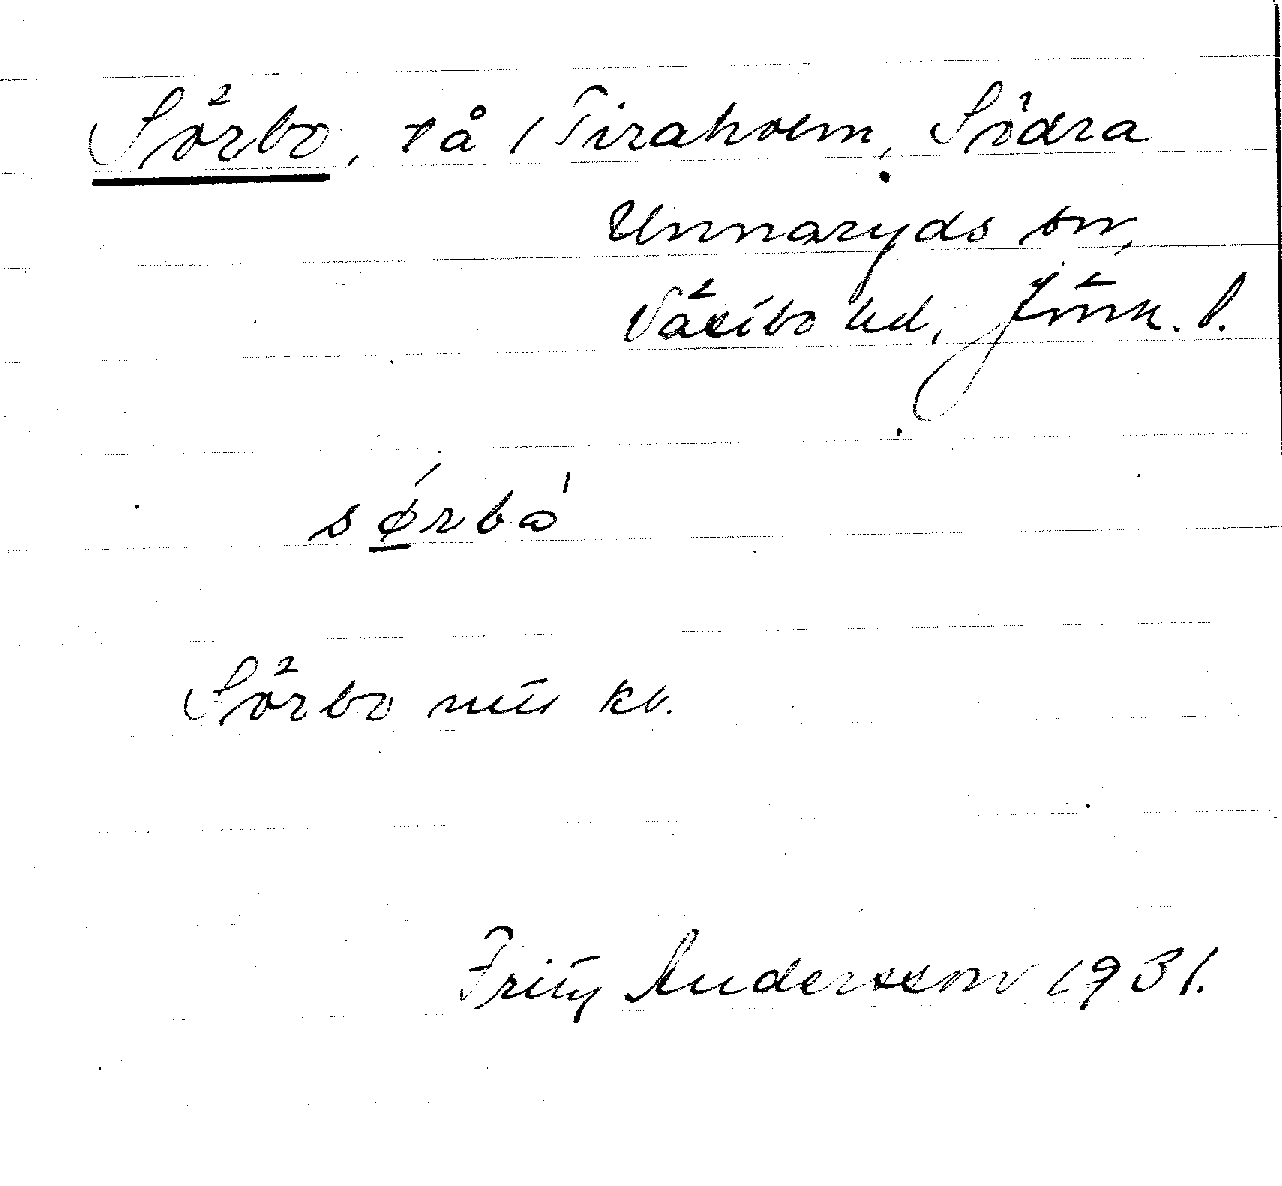 Sörbo, på Tiraholm, Södra
Unnaryds sn,
Västbo hd, Jönk. l.
sørbo
Sörbo
Fritz Andersson 1931.